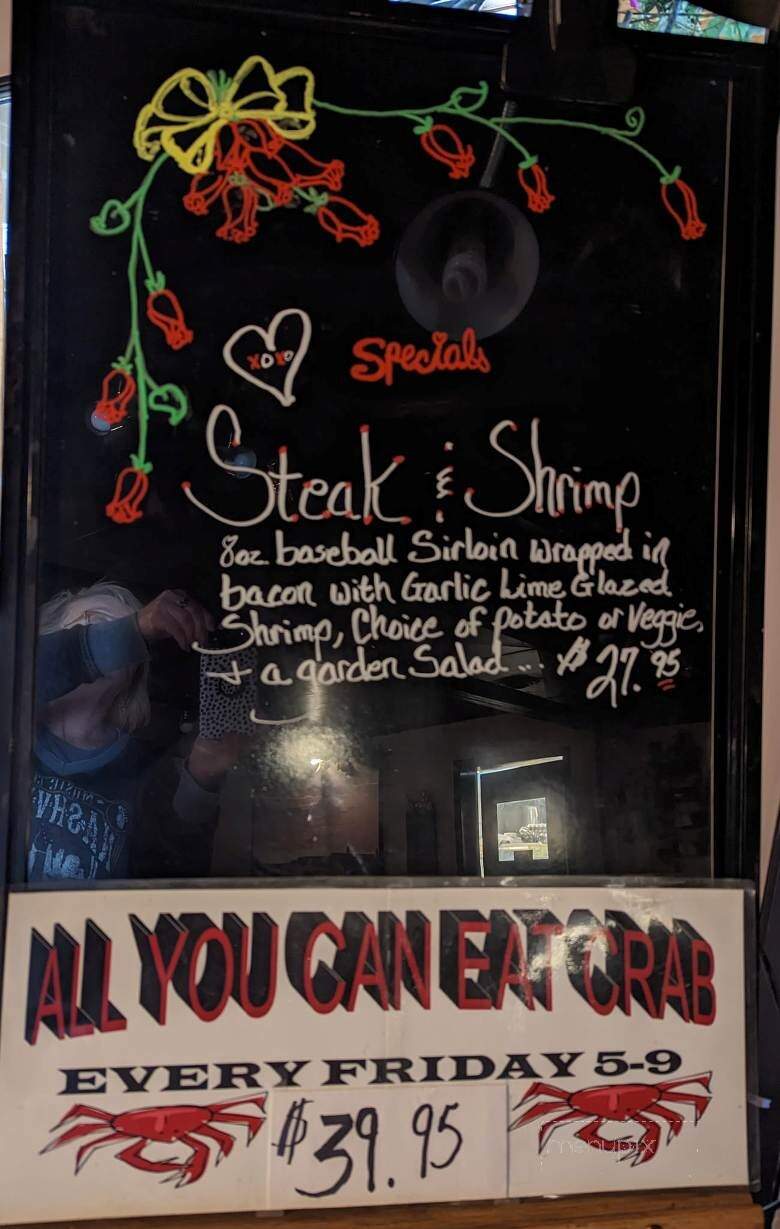 XOXO
Specials
Steak & Shrimp
8oz baseball Sirloin wrapped in
bacon with Garlic Lime Glazed
Shrimp, Choice of potato or Veggie,
+ a garden Salad... $27.95
ALL YOU CAN EAT CRAB
EVERY FRIDAY 5-9
$39.95
menupix